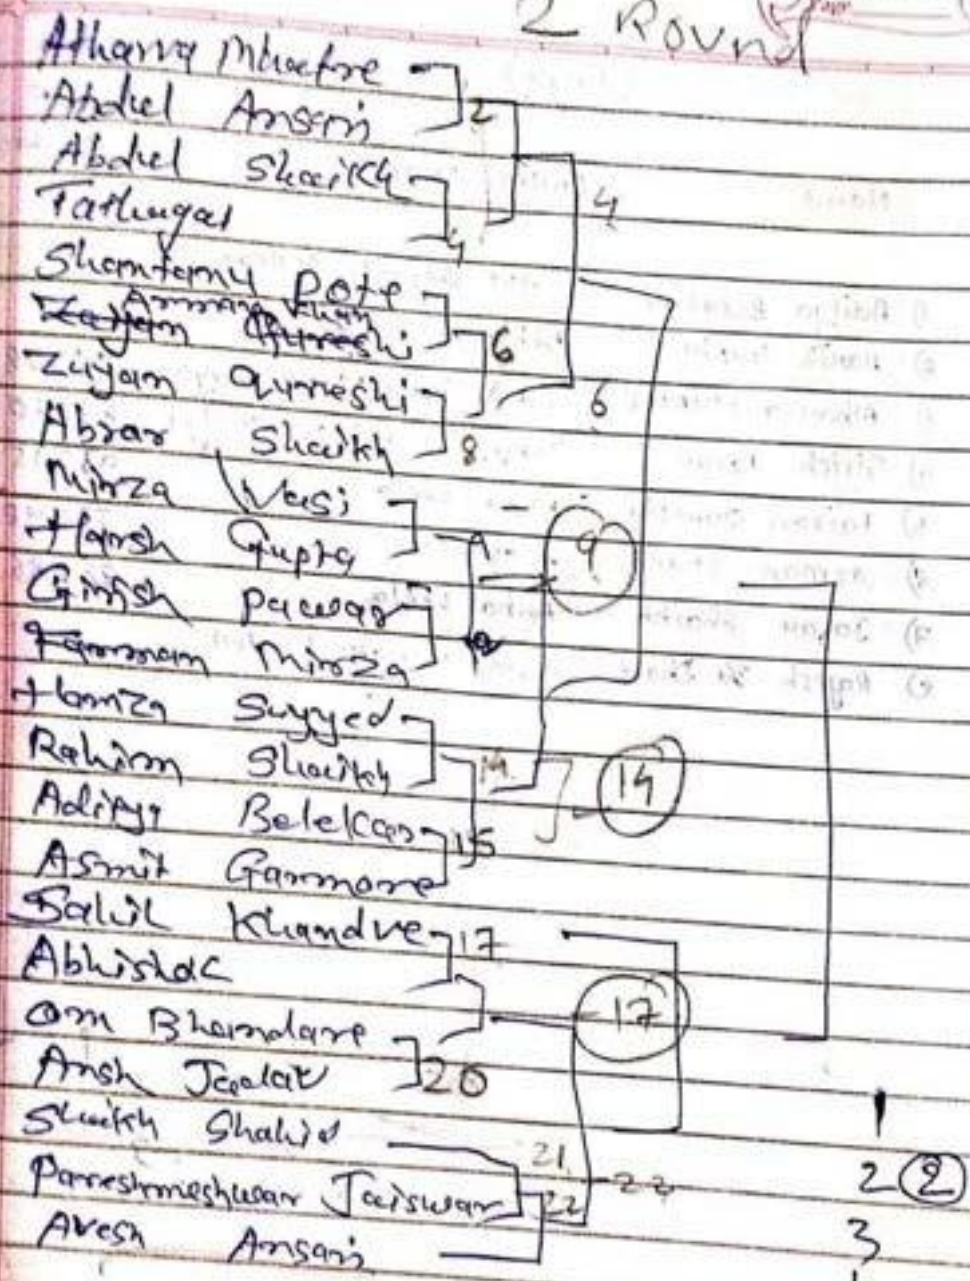 2 Round
Atharva Mhatre
Abdul Ansari 2
Abdul Shaikh 4
4
Shantanu Pote
Arman Khan 6
Ziyam Qureshi 6
Abrar Shaikh 8
Mirza Wasi
Harsh Gupta 9 9
Girish Pawar
Farmman Mirza
Hamza Sayyed
Rahim Shaikh 14 14
Aditya Belekar 15
Asmit Ganmore
Sahil Khandve 17
Abhishek
Om Bhandare 17
Ansh Jadav 20
Shaikh Shahid 1
21
Parmeshmeshwar Jaiswar 22 22 2 2
Avesh Ansari 3